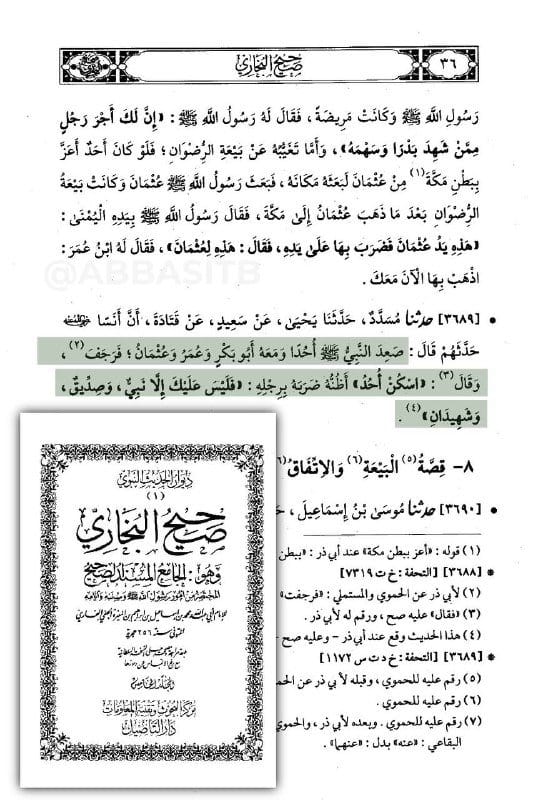 صحيح البخاري
٣٦
رَسُولِ اللَّهِ ﷺ وَكَانَتْ مَرِيضَةً، فَقَالَ لَهُ رَسُولُ اللَّهِ ﷺ: «إِنَّ لَكَ أَجْرَ رَجُلٍ
مِمَّنْ شَهِدَ بَدْرًا وَسَهْمَهُ»، وَأَمَّا تَغَيُّبُهُ عَنْ بَيْعَةِ الرِّضْوَانِ؛ فَلَوْ كَانَ أَحَدٌ أَعَزَّ
بِبَطْنِ مَكَّةَ(١) مِنْ عُثْمَانَ لَبَعَثَهُ مَكَانَهُ، فَبَعَثَ رَسُولُ اللَّهِ ﷺ عُثْمَانَ وَكَانَتْ بَيْعَةُ
الرِّضْوَانِ بَعْدَ مَا ذَهَبَ عُثْمَانُ إِلَى مَكَّةَ، فَقَالَ رَسُولُ اللَّهِ ﷺ بِيَدِهِ الْيُمْنَى:
«هَذِهِ يَدُ عُثْمَانَ فَضَرَبَ بِهَا عَلَى يَدِهِ، فَقَالَ: هَذِهِ لِعُثْمَانَ»، فَقَالَ لَهُ ابْنُ عُمَرَ:
اذْهَبْ بِهَا الْآنَ مَعَكَ.
@ABBASITB
• [٣٦٨٩] حدثنا مُسَدَّدٌ، حَدَّثَنَا يَحْيَى، عَنْ سَعِيدٍ، عَنْ قَتَادَةَ، أَنَّ أَنَسًا
حَدَّثَهُمْ قَالَ: صَعِدَ النَّبِيُّ ﷺ أُحُدًا وَمَعَهُ أَبُو بَكْرٍ وَعُمَرُ وَعُثْمَانُ؛ فَرَجَفَ(٢)،
وَقَالَ(٣): «اسْكُنْ أُحُدُ» أَظُنُّهُ ضَرَبَهُ بِرِجْلِهِ: «فَلَيْسَ عَلَيْكَ إِلَّا نَبِيٌّ، وَصِدِّيقٌ،
وَشَهِيدَانِ»(٤).
٨- قِصَّةُ(٥) الْبَيْعَةِ(٦) وَالِاتِّفَاقُ
• [٣٦٩٠] حدثنا مُوسَى بْنُ إِسْمَاعِيلَ،
(١) قوله: «أعز ببطن مكة» عند أبي ذر: «ببطن
* [٣٦٨٨] [التحفة: خ ت ٧٣١٩]
(٢) لأبي ذر عن الحموي والمستملي: «فرجفت»
(٣) «فقال» عليه صح، ورقم له لأبي ذر.
(٤) هذا الحديث وقع عند أبي ذر - وعليه صح -
* [٣٦٨٩] [التحفة: خ د ت س ١١٧٢]
(٥) رقم عليه للحموي، وقبله لأبي ذر عن الحم
(٦) رقم عليه للحموي.
(٧) رقم عليه للحموي. وبعده لأبي ذر، والحموي
البقاعي: «عنه» بدل: «عنهما».
ديوان الحديث النبوي
(١)
صحيح البخاري
وهو: الجامع المسند الصحيح
المختصر من أمور رسول الله ﷺ وسننه وأيامه
للإمام أبي عبد الله محمد بن إسماعيل بن إبراهيم بن المغيرة الجعفي البخاري
المتوفى سنة ٢٥٦ هجرة
مركز البحوث وتقنية المعلومات
دار التأصيل